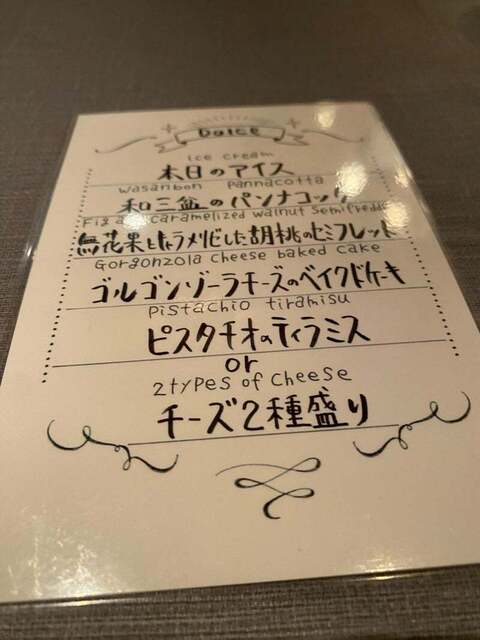 Dolce
ice cream
本日のアイス
wasanbon pannacotta
和三盆のパンナコッタ
Fig a caramelized walnut semifreddo
無花果とキャラメリゼした胡桃のセミフレット
Gorgonzola cheese baked cake
ゴルゴンゾーラチーズのベイクドケーキ
pistachio tiramisu
ピスタチオのティラミス
or
2types of cheese
チーズ2種盛り